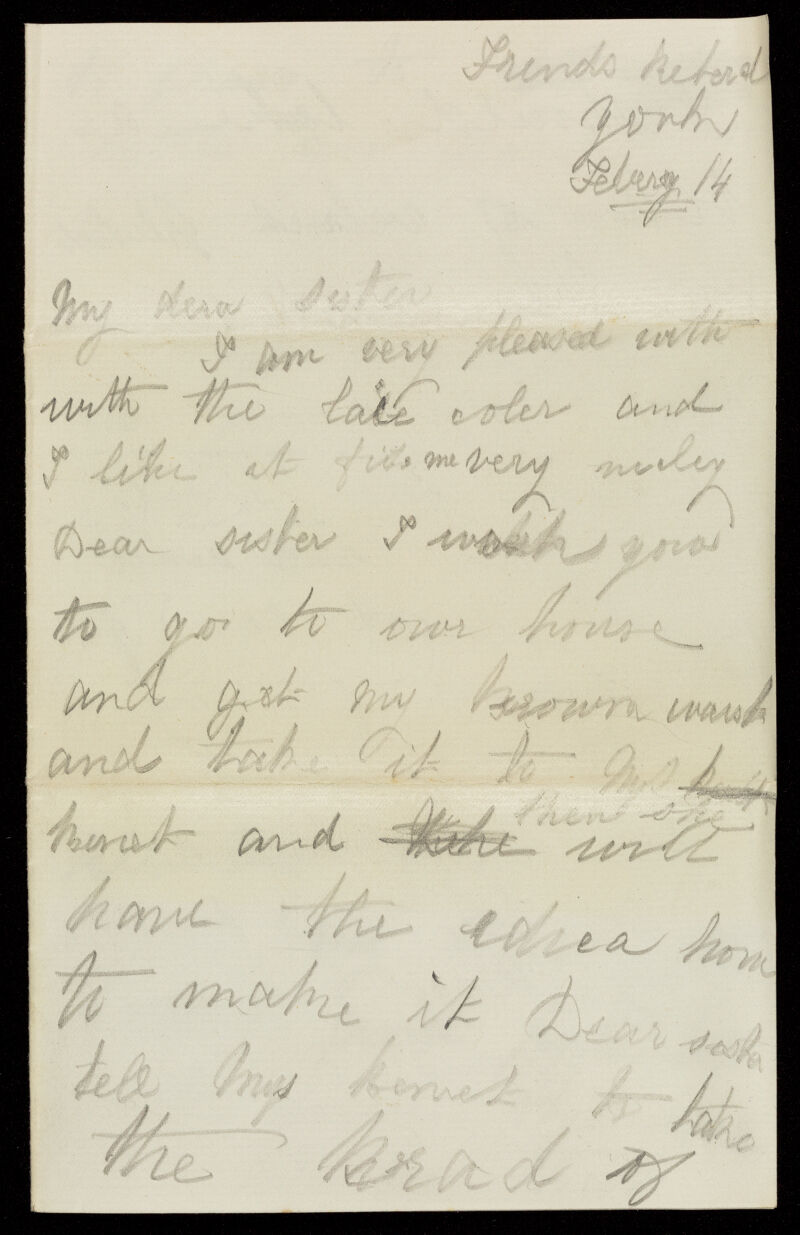 Frends Reterd
York
Febery 14
My dera sister
I am very pleased with
with the lace coler and
I like at fits me very nicley
Dear sister I wish you
to go to our house
and get my brown waist
and take it to Mrs
and then she will
have the edrea how
to make it Dear sister
tell Mrs to take
the brad of